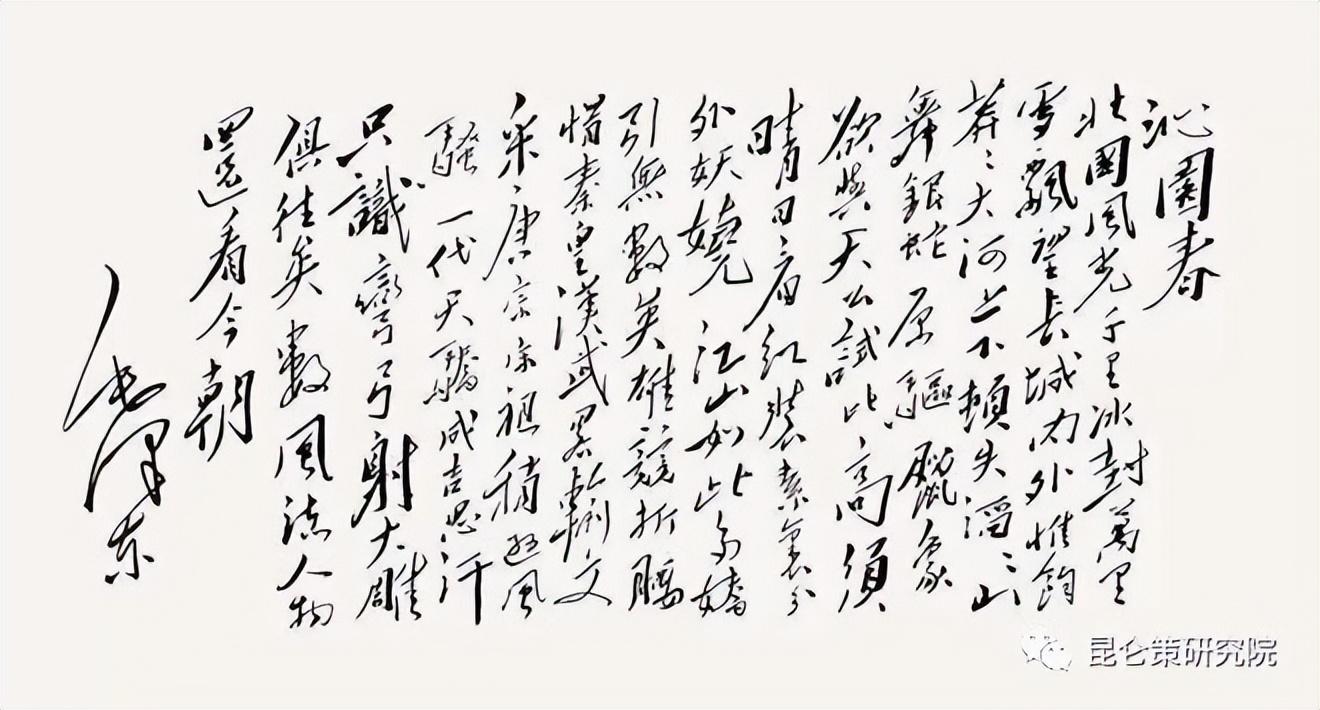 沁園春
北國風光千里冰封萬里
雪飄望長城內外惟餘
莽〻大河上下頓失滔〻山
舞銀蛇原驅臘象
欲與天公試比高須
晴日看紅裝素裹分
外妖嬈江山如此多嬌
引無數英雄競折腰
惜秦皇漢武略輸文
采唐宗宋祖稍遜風
騷一代天驕成吉思汗
只識彎弓射大雕
俱往矣數風流人物
還看今朝
毛澤东
昆仑策研究院